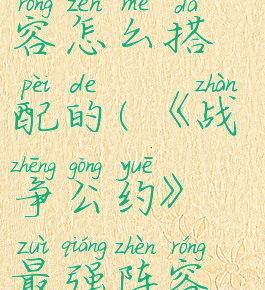 róng zěn me dā
容怎么搭
pèi de zhàn
配的(《战
zhēng gōng yuē
争公约》
zuì qiáng zhèn róng
最强阵容